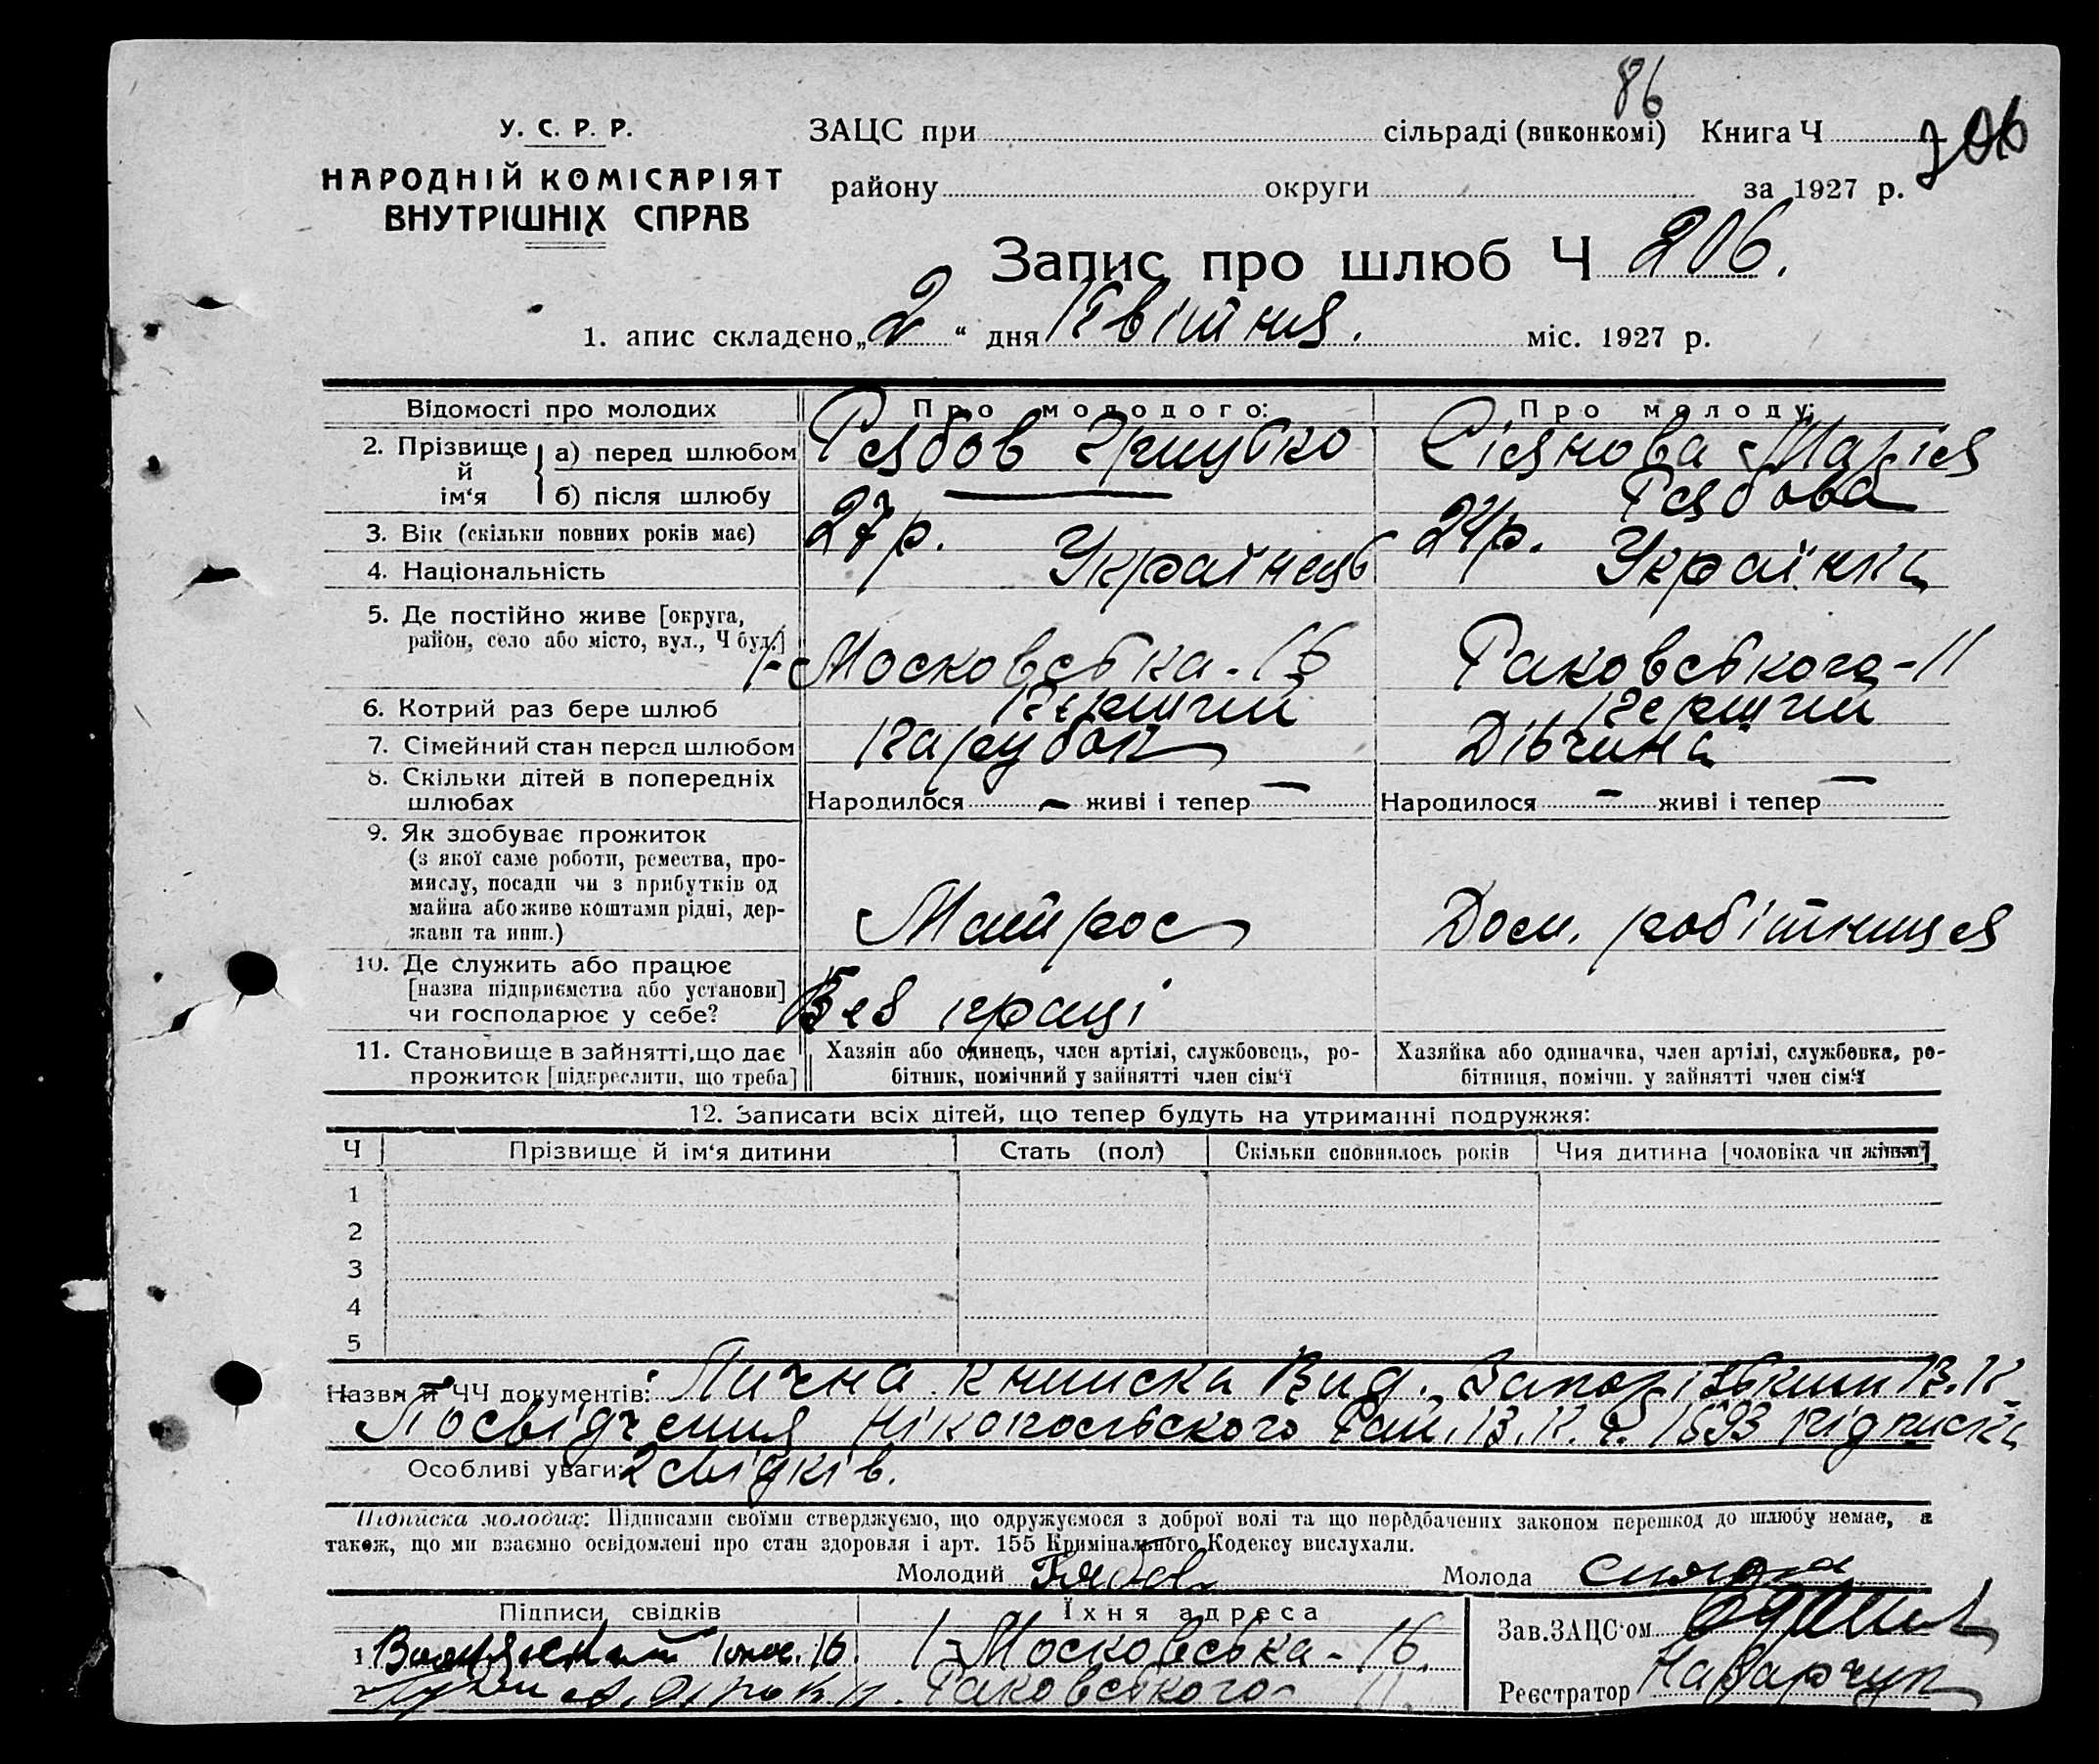 86
У. С. Р. Р.
НАРОДНІЙ КОМІСАРІЯТ
ВНУТРІШНІХ СПРАВ
ЗАЦС при сільраді (виконкомі) Книга Ч 206
району округи за 1927 р.
Запис про шлюб Ч 206.
1. апис складено „2“ дня Квітня. міс. 1927 р.
Відомості про молодих Про молодого: Про молоду:
2. Прізвище й ім‘я
а) перед шлюбом Рябов Грицько Сіянова Марія
б) після шлюбу — Рябова
3. Вік (скільки повних років має) 27 р. 24 р.
4. Національність Українець Українка
5. Де постійно живе [округа,
район, село або місто, вул., Ч буд.] 1-Московська-16 Раковського-11
6. Котрий раз бере шлюб Перший Перший
7. Сімейний стан перед шлюбом Парубок Дівчина
8. Скільки дітей в попередніх
шлюбах Народилося — живі і тепер — Народилося — живі і тепер —
9. Як здобуває прожиток
(з якої саме роботи, ремества, про-
мислу, посади чи з прибутків од
майна або живе коштами рідні, дер-
жави та инш.) Матрос Дом. робітниця
10. Де служить або працює
[назва підприємства або установи]
чи господарює у себе? Без праці
11. Становище в зайнятті, що дає
прожиток [підкреслити, що треба]
Хазяїн або одинець, член артілі, службовець, ро-
бітник, помічний у зайнятті член сім‘ї
Хазяйка або одиначка, член артілі, службовка, ро-
бітниця, помічн. у зайнятті член сім‘ї
12. Записати всіх дітей, що тепер будуть на утриманні подружжя:
Ч Прізвище й ім‘я дитини Стать (пол) Скільки сповнилось років Чия дитина [чоловіка чи жінки]
1
2
3
4
5
Назви й ЧЧ документів: Лична книжка Вид. Запорізьким В.К.
Посвідчення Нікопольского Рай.В.К. Ч. 1593 підписка
Особливі уваги: 2 свідків.
Підписка молодих: Підписами своїми стверджуємо, що одружуємося з доброї волі та що передбачених законом перешкод до шлюбу немає, а
також, що ми взаємно освідомлені про стан здоровля і арт. 155 Кримінального Кодексу вислухали.
Молодий Рябов Молода
Підписи свідків Їхня адреса
1 1 мос. 16. 1-Московська-16.
2 Раковського 11.
Зав. ЗАЦС‘ом
Реєстратор